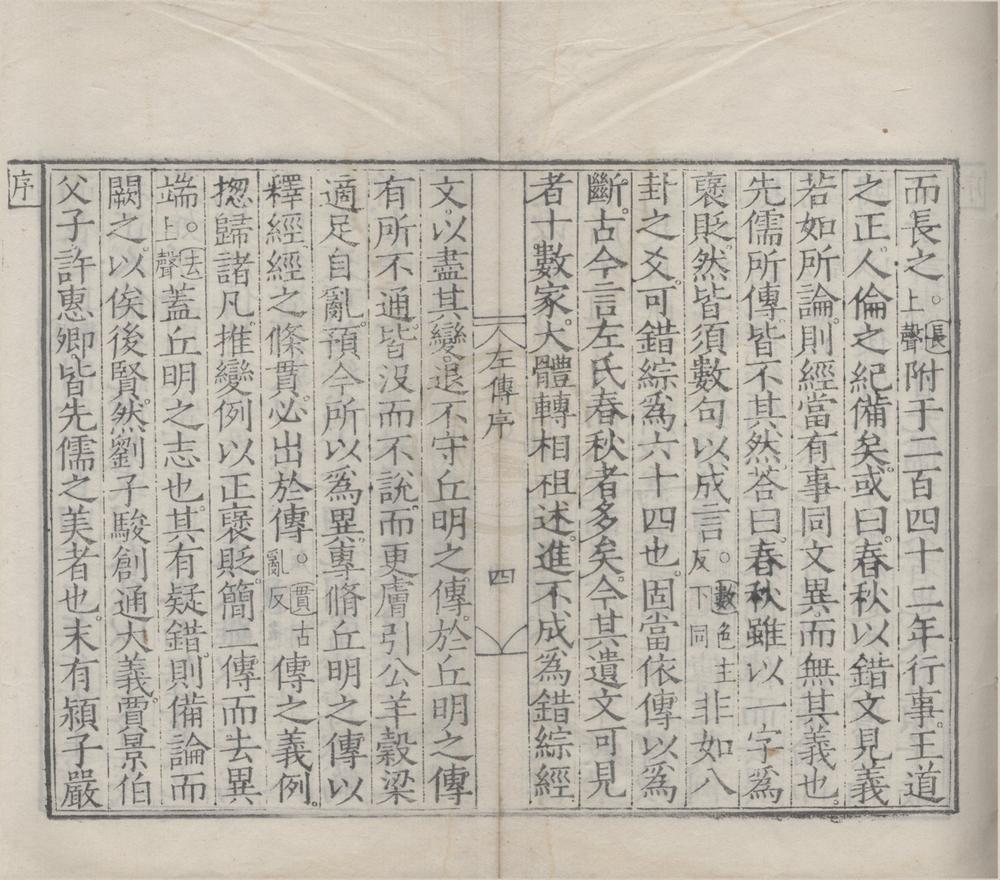 而長之。長上聲附于二百四十二年行事。王道
之正。人倫之紀備矣。或曰。春秋以錯文見義
若如所論。則經當有事同文異而無其義也。
先儒所傳皆不其然。荅曰。春秋雖以一字爲
褒貶。然皆須數句以成言。數色主反下同非如八
卦之爻。可錯綜爲六十四也。固當依傳以爲
斷。古今言左氏春秋者多矣。今其遺文可見
者十數家。大體轉相祖述。進不成爲錯綜經
左傳序
四
文。以盡其變。退不守丘明之傳。於丘明之傳
有所不通。皆沒而不說。而更膚引公羊穀梁
適足自亂。預今所以爲異。專脩丘明之傳以
釋經。經之條貫。必出於傳。貫古亂反傳之義例。
揔歸諸凡。推變例以正褒貶。簡二傳而去異
端。去上聲蓋丘明之志也。其有疑錯。則備論而
闕之。以俟後賢。然劉子駿創通大義。賈景伯
父子許惠卿。皆先儒之美者也。末有潁子嚴
序